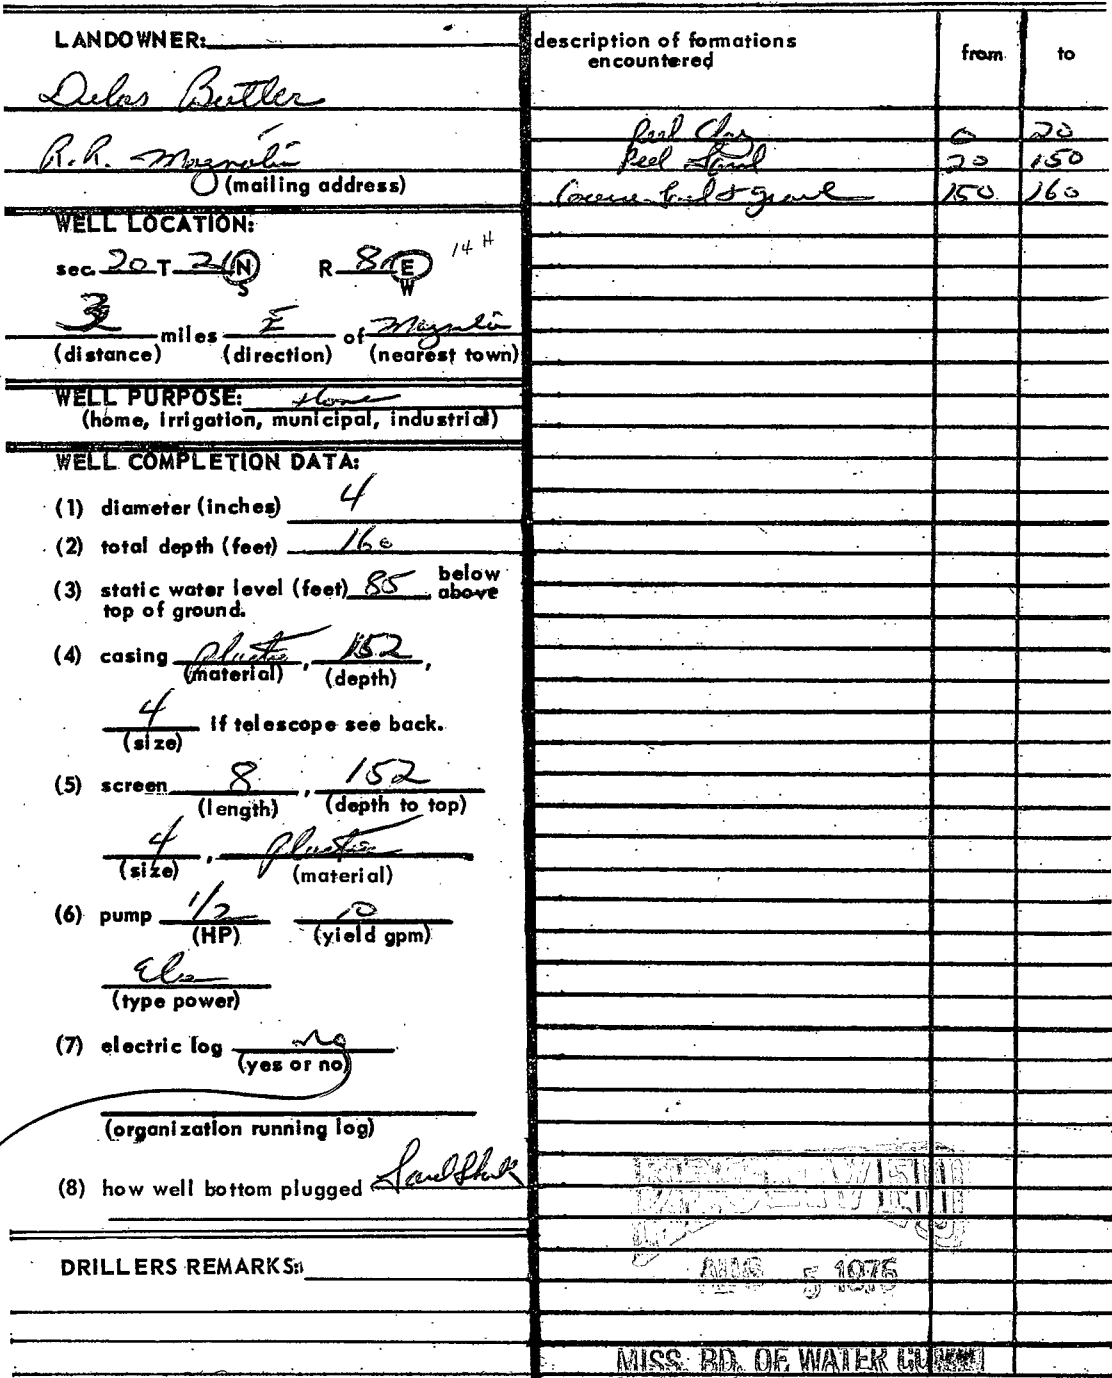 LANDOWNER:
Delos Butler
R.R. Magnolia
(mailing address)
WELL LOCATION:
sec. 20 T 2 N S R 8 E W 14 H
3 miles E of Magnolia
(distance) (direction) (nearest town)
WELL PURPOSE: Home
(home, irrigation, municipal, industrial)
WELL COMPLETION DATA:
(1) diameter (inches) 4
(2) total depth (feet) 160
(3) static water level (feet) 85 below above
top of ground.
(4) casing plastic, 152,
(material) (depth)
4 if telescope see back.
(size)
(5) screen 8, 152
(length) (depth to top)
4, plastic
(size) (material)
(6) pump 1/2 10
(HP) (yield gpm)
Elec
(type power)
(7) electric log no
(yes or no)
(organization running log)
(8) how well bottom plugged
DRILLERS REMARKS:
description of formations from to
encountered
Red Clay 0 20
Red Sand 20 150
Coarse Sand & gravel 150 160
RECEIVED
AUG 5 1975
MISS. BD. OF WATER